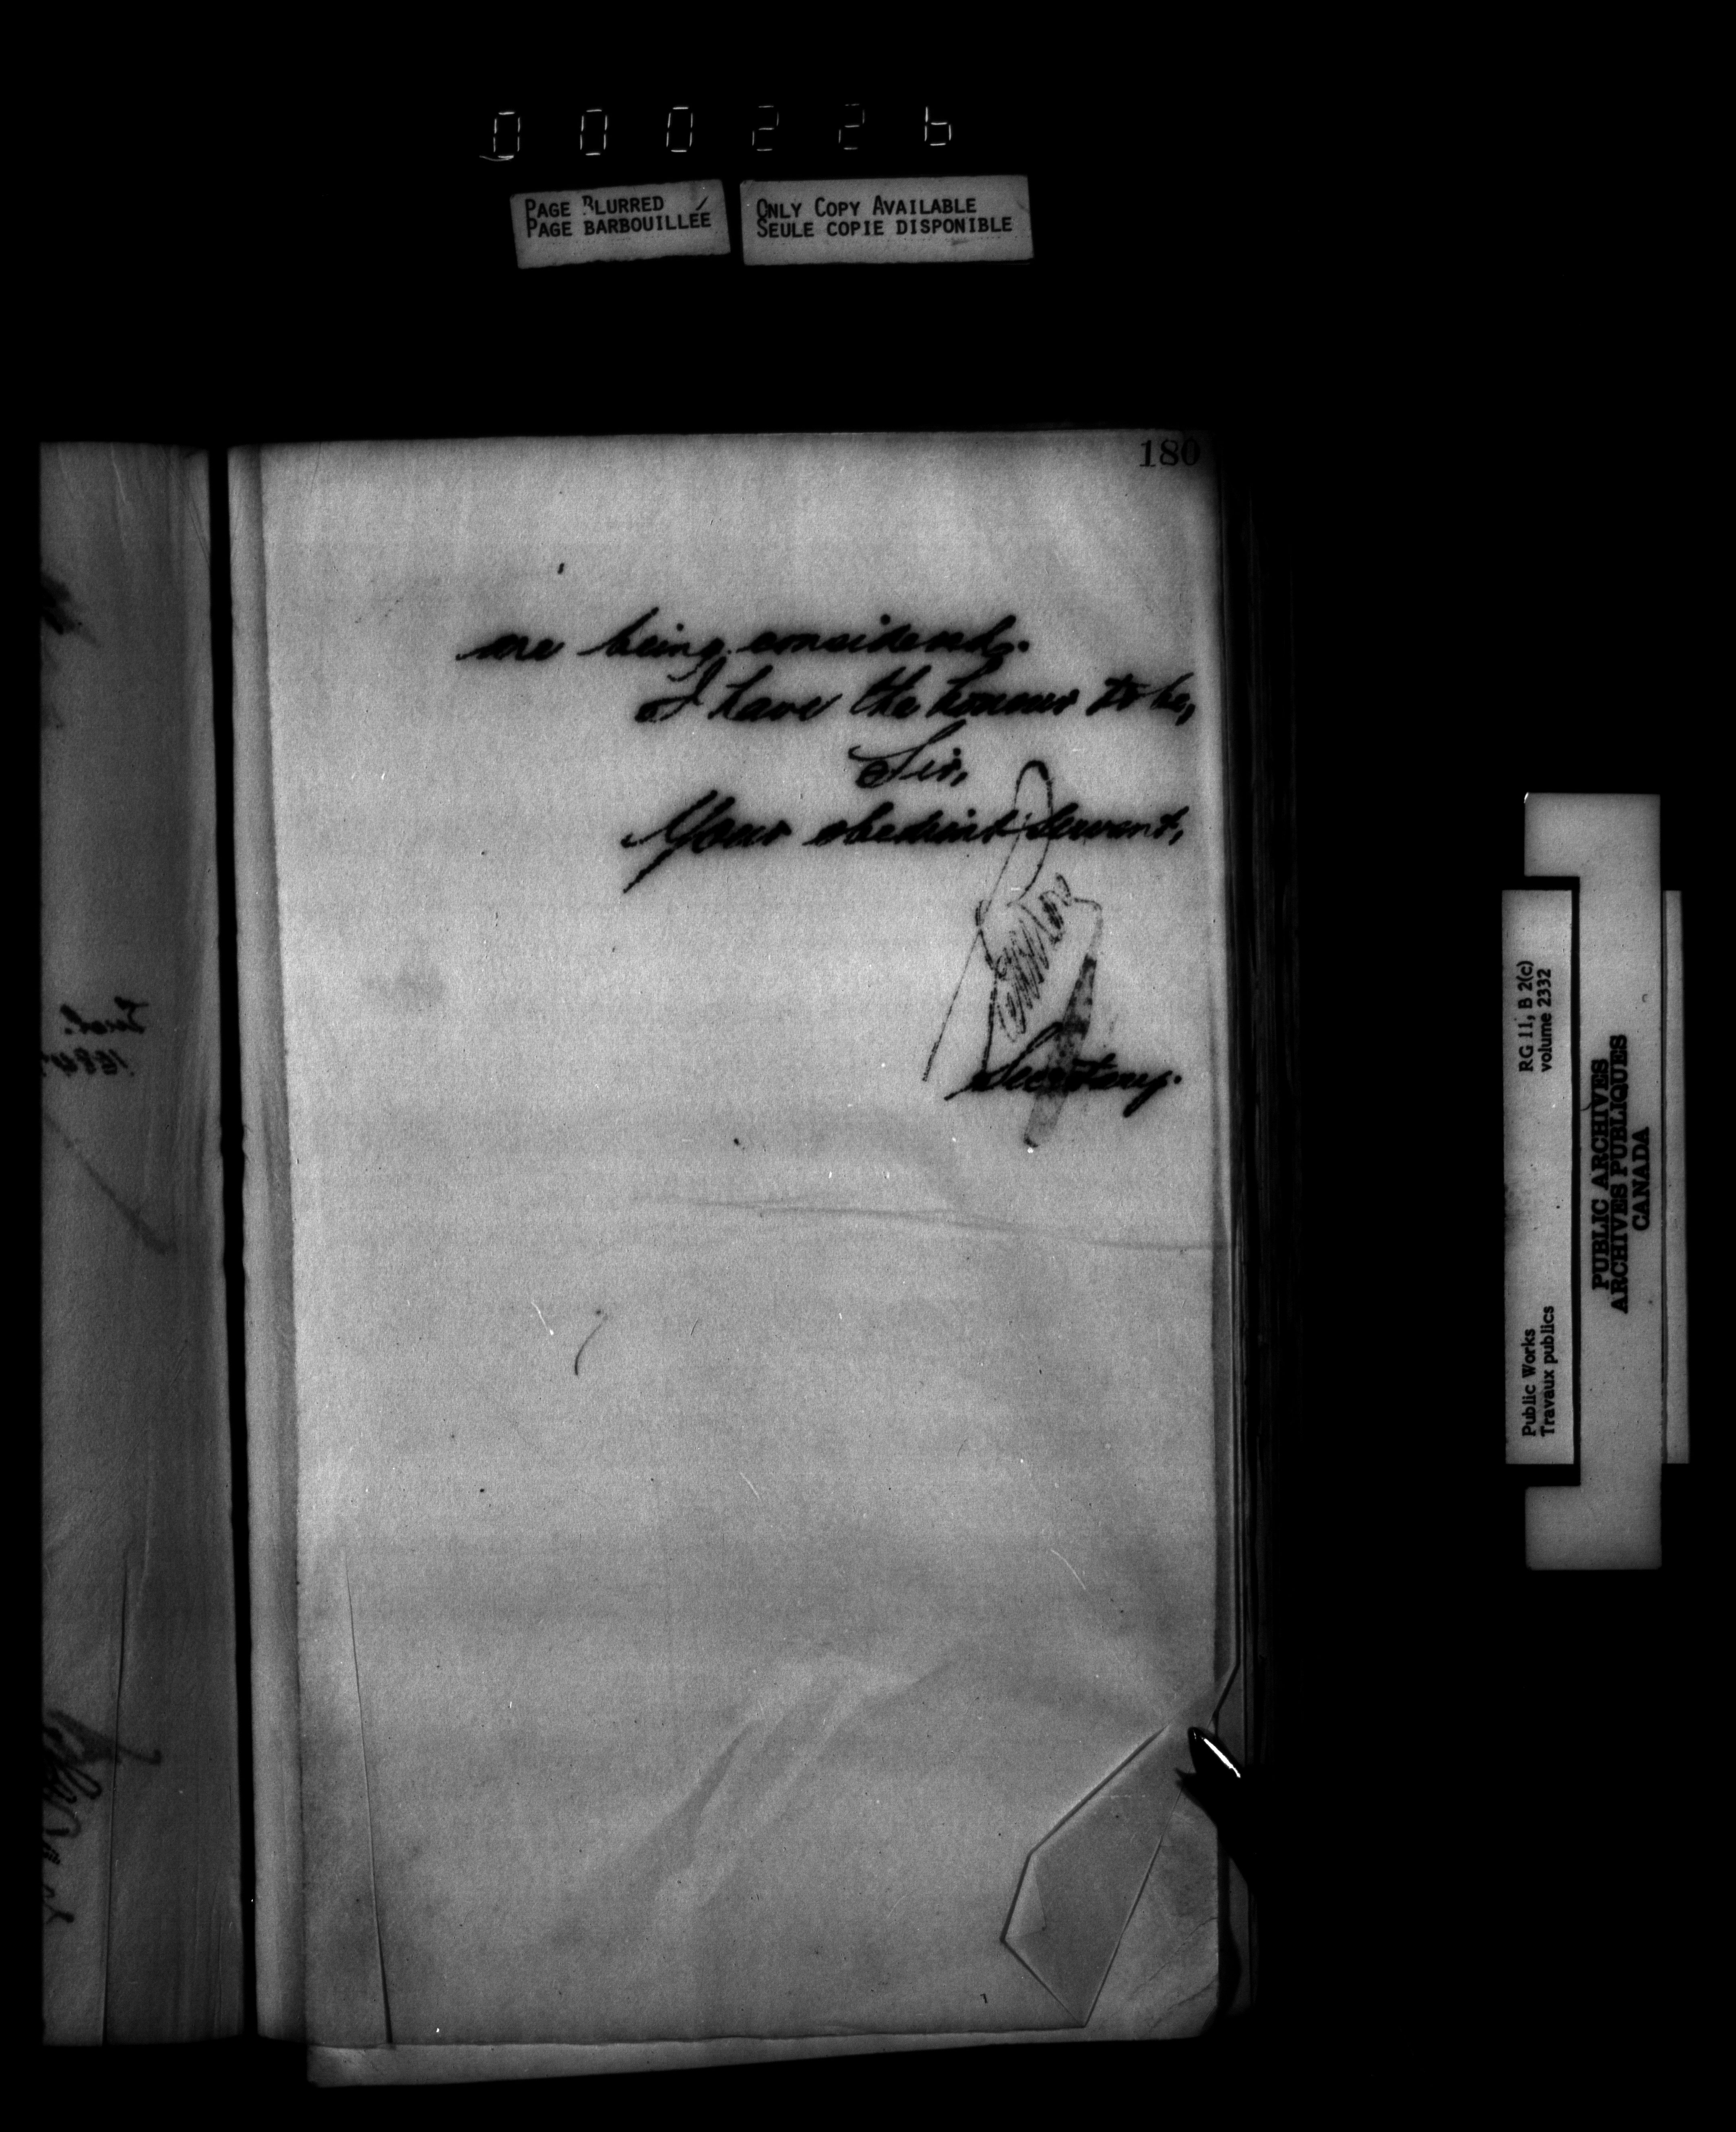 000226
PAGE BLURRED
PAGE BARBOUILLÉE
ONLY COPY AVAILABLE
SEULE COPIE DISPONIBLE
180
are being considered.
I have the honour to be,
Sir,
Your obedient servant,
Secretary.
RG 11, B 2(c)
volume 2332
Public Works
Travaux publics
PUBLIC ARCHIVES
ARCHIVES PUBLIQUES
CANADA